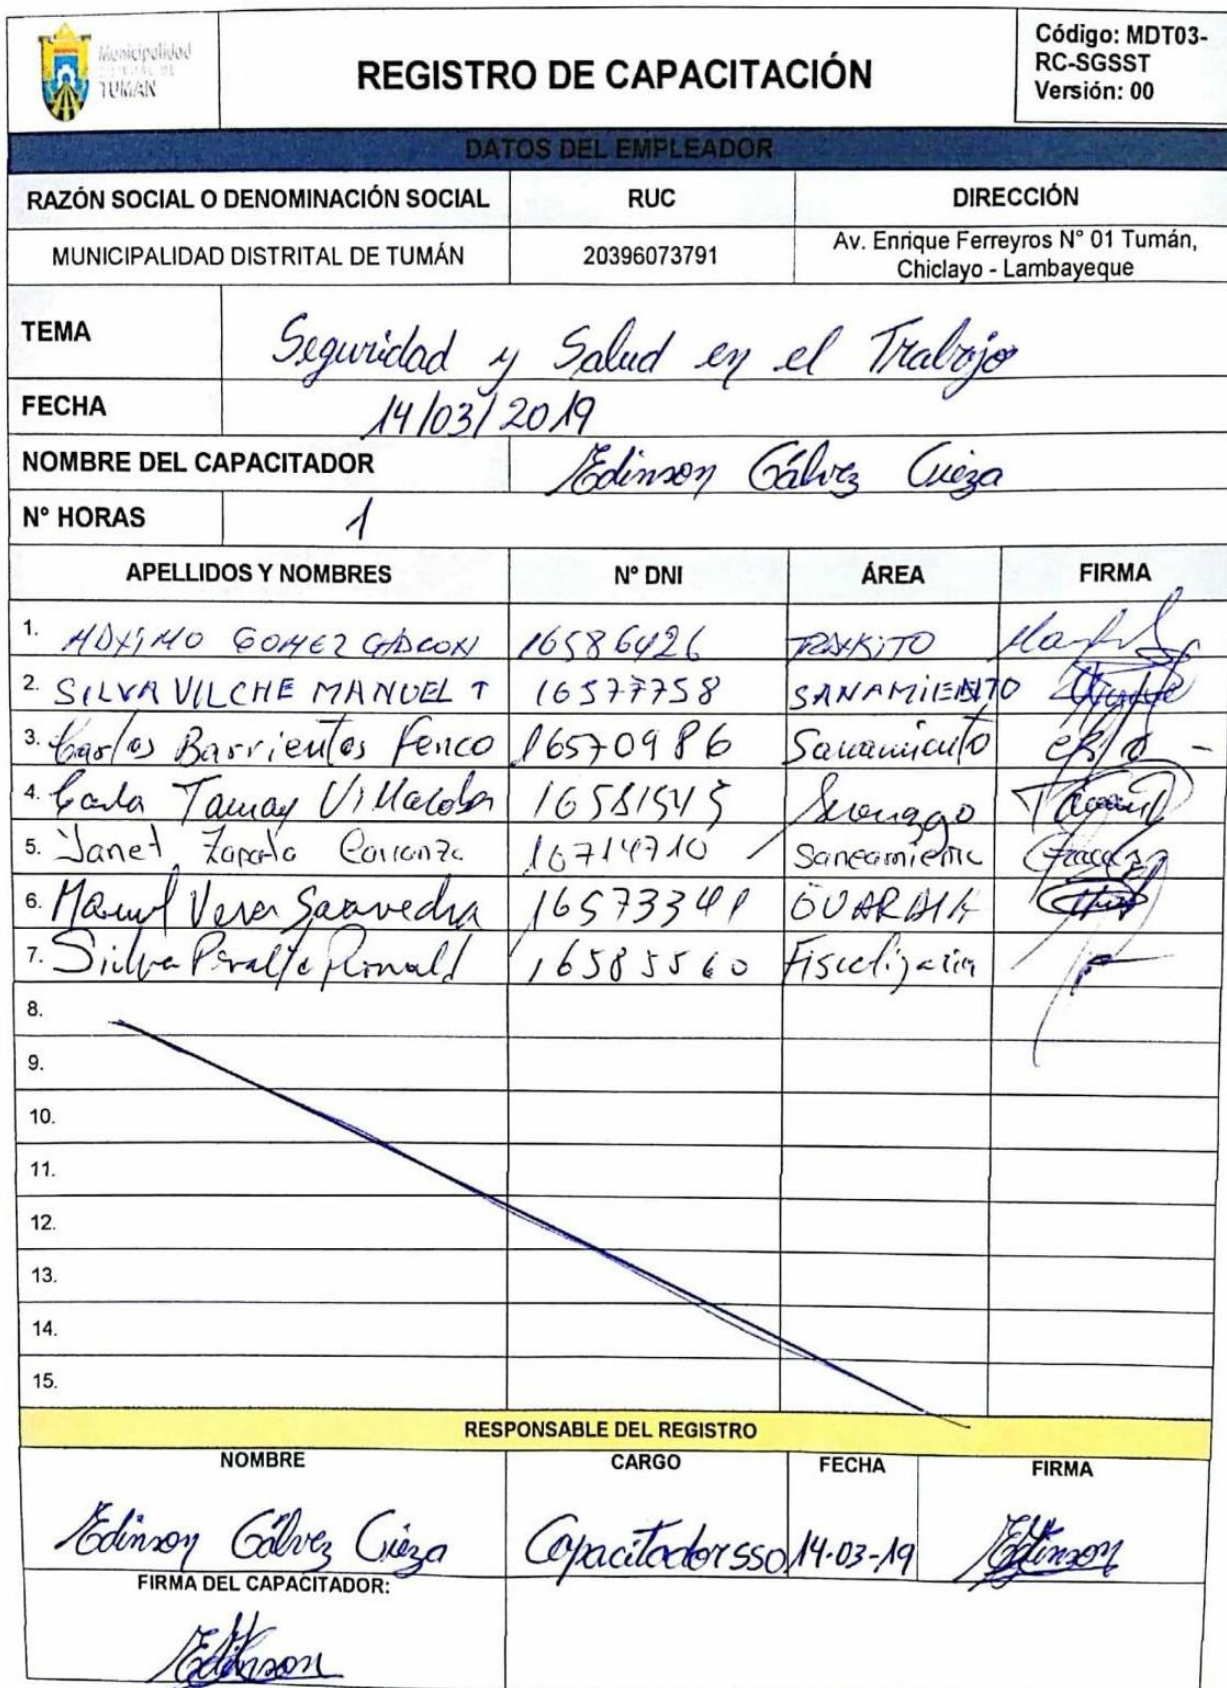 Municipalidad
DISTRITAL DE
TUMAN
REGISTRO DE CAPACITACIÓN
Código: MDT03-
RC-SGSST
Versión: 00
DATOS DEL EMPLEADOR
RAZÓN SOCIAL O DENOMINACIÓN SOCIAL RUC DIRECCIÓN
MUNICIPALIDAD DISTRITAL DE TUMÁN 20396073791 Av. Enrique Ferreyros N° 01 Tumán,
Chiclayo - Lambayeque
TEMA Seguridad y Salud en el Trabajo
FECHA 14/03/2019
NOMBRE DEL CAPACITADOR Edinson Gálvez Cieza
N° HORAS 1
APELLIDOS Y NOMBRES N° DNI ÁREA FIRMA
1. MAXIMO GOMEZ 16586426
2. SILVA VILCHE MANUEL T 16577758 SANAMIENTO
3. Carlos Barrientos Fenco 16570986 Sanamiento
4. Carla Tamay 16581545
5. Janet Zapata Carranza 16714710 Saneamiento
6. Manuel Vera Saavedra 16573341 GUARDIA
7. Silva Peralta Ronald 16585560 Fiscalización
8.
9.
10.
11.
12.
13.
14.
15.
RESPONSABLE DEL REGISTRO
NOMBRE CARGO FECHA FIRMA
Edinson Gálvez Cieza Capacitador SSO 14-03-19 Edinson
FIRMA DEL CAPACITADOR:
Edinson